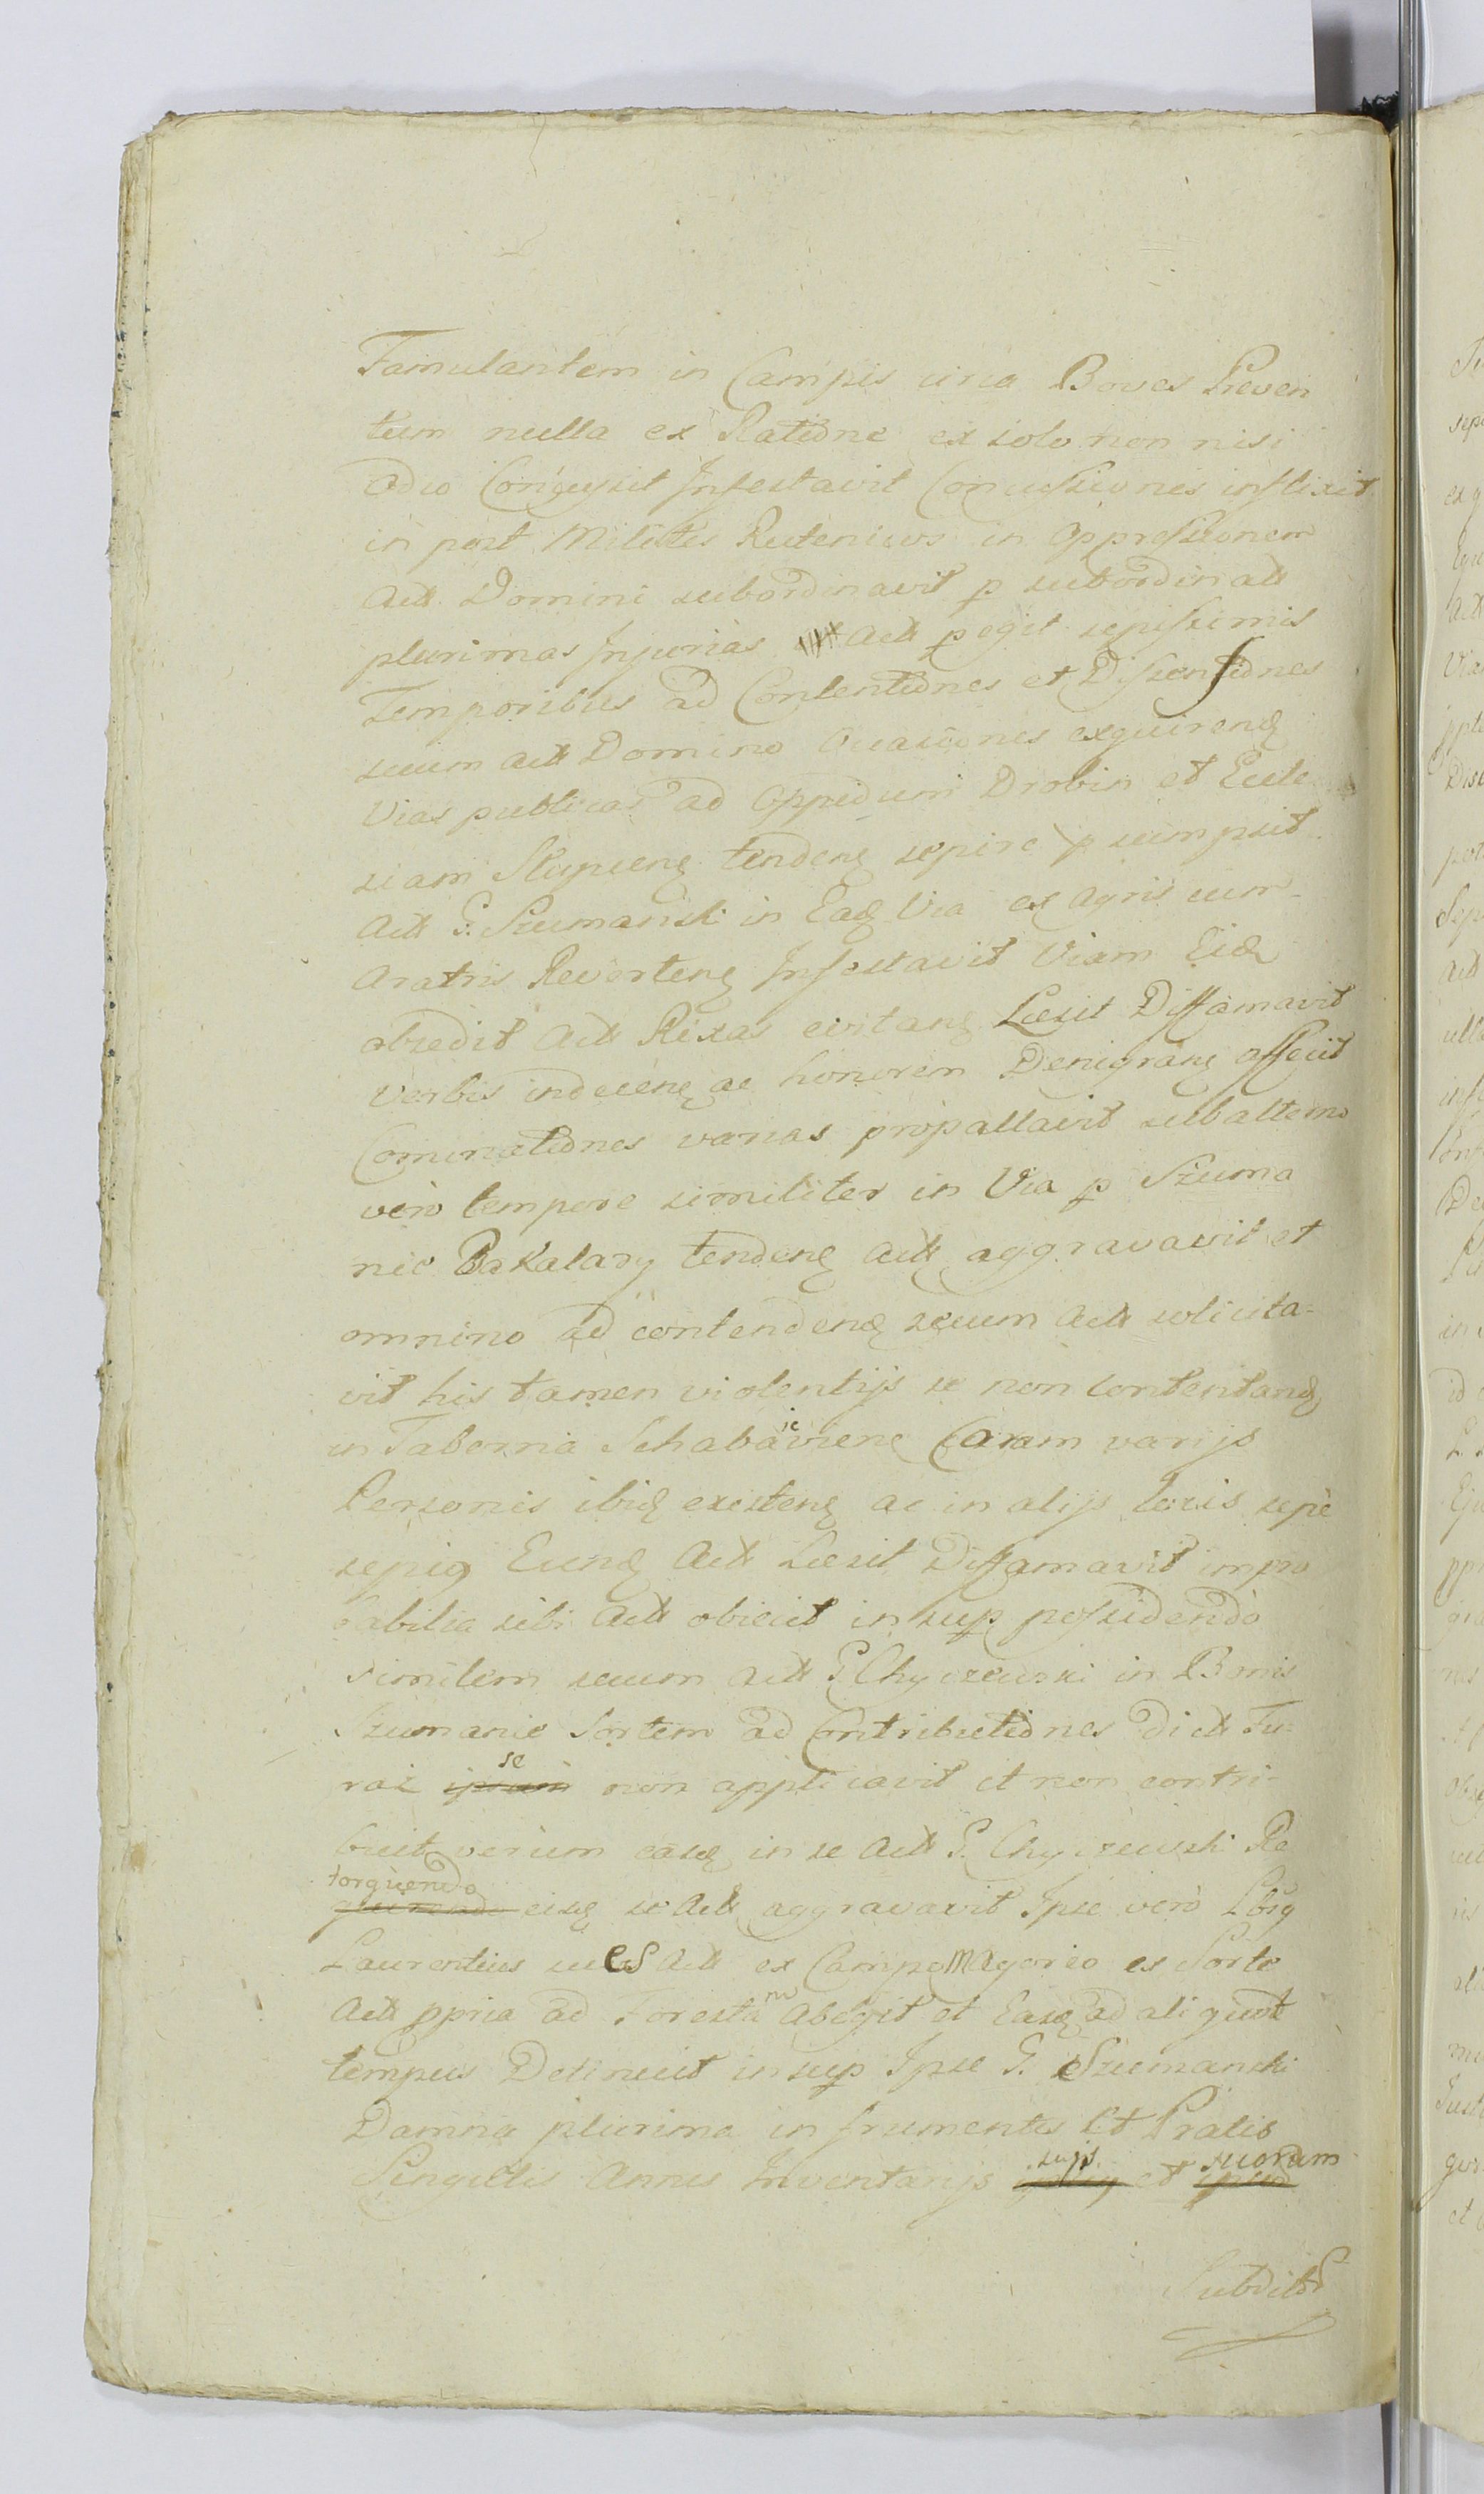 Famulantem in Campis circa Boves Preven
tum nulla ex Ratione ex solo non nisi
odio Concussit Infestavit Concussiones inflixit
in post Milites Rutenicos in Oppressionem
Act Domini subordinavit p subordinatt
plurimas Injurias Act p egit sepissimis
Temporibus ad Contentiones et Dissensiones
secum act Domino Occasiones exquirenq
Vias publicas ad Oppidum Drobin et Eccle
siam Slupcenq tendenq sepire p sumpsit
Act G. Szumanski in Eadq Via ex Agris cum
Aratris Revertenq Infestavit Viam Eidq
obsedit Act Rixas evitanq Læsit Diffamavit
Verbis indecenq ac honorem Denigranq affecit
Cominationes varias propallavit subalterno
vero tempore similiter in Via p Szuma
nie Bakalary tendenq Act aggravavit et
omnino ad contendenq secum Act solicita-
vit his tamen violentijs se non contentanq
in Taberna Schabaiewienq Coram varijs
Personis ibiq existenq ac in alijs locis sepè
sepiq Eundq Act Læsit Diffamavit impro
babilia sibi Act obiecit in sup possidendo
similem secum Act G Chyczewski in Bonis
Szumanie Sortem ad Contributiones dict Fu-
raż se non applicavit et non contri-
buit verum easq in se Act G. Chyczewski Re
torquendo eisq se Act aggravavit Ipse vero Lbrq
Laurentius sues Act ex Campo Magorio ex Sorte
Act ppria ad Forestam Abegit et Easq ad aliquot
tempus Detinuit in sup Ipse G. Szumanski
Damna plurima in frumentis Et Pratis
Singulis Annis Inventarijs suis et suorum
Subditor